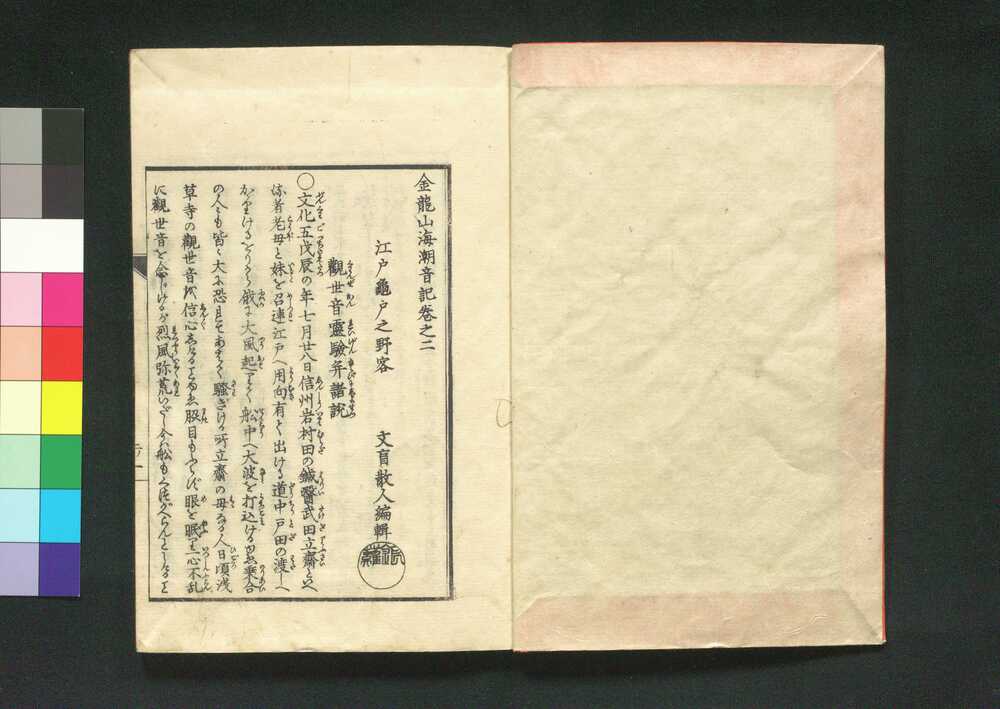 金龍山海潮音記巻之二
江戸龜戸之野客　文盲散人編輯
觀世音靈驗并諸説
○文化五戊辰の年七月廿八日信州岩村田の鍼醫武田立齋と
者老母と妹を召連江戸へ用向有て出ける道中戸田の渡しへ
かゝりけるをりから俄に大風起りて船中へ大波を打込ける故乗合
の人々も皆々大に恐れ騒ぎける所立齋の母なる人日頃浅
草寺の觀世音を信心しける故股目もふらず眼を眠り一心不乱
に觀世音を念じけるが烈風弥荒いだし今は船も